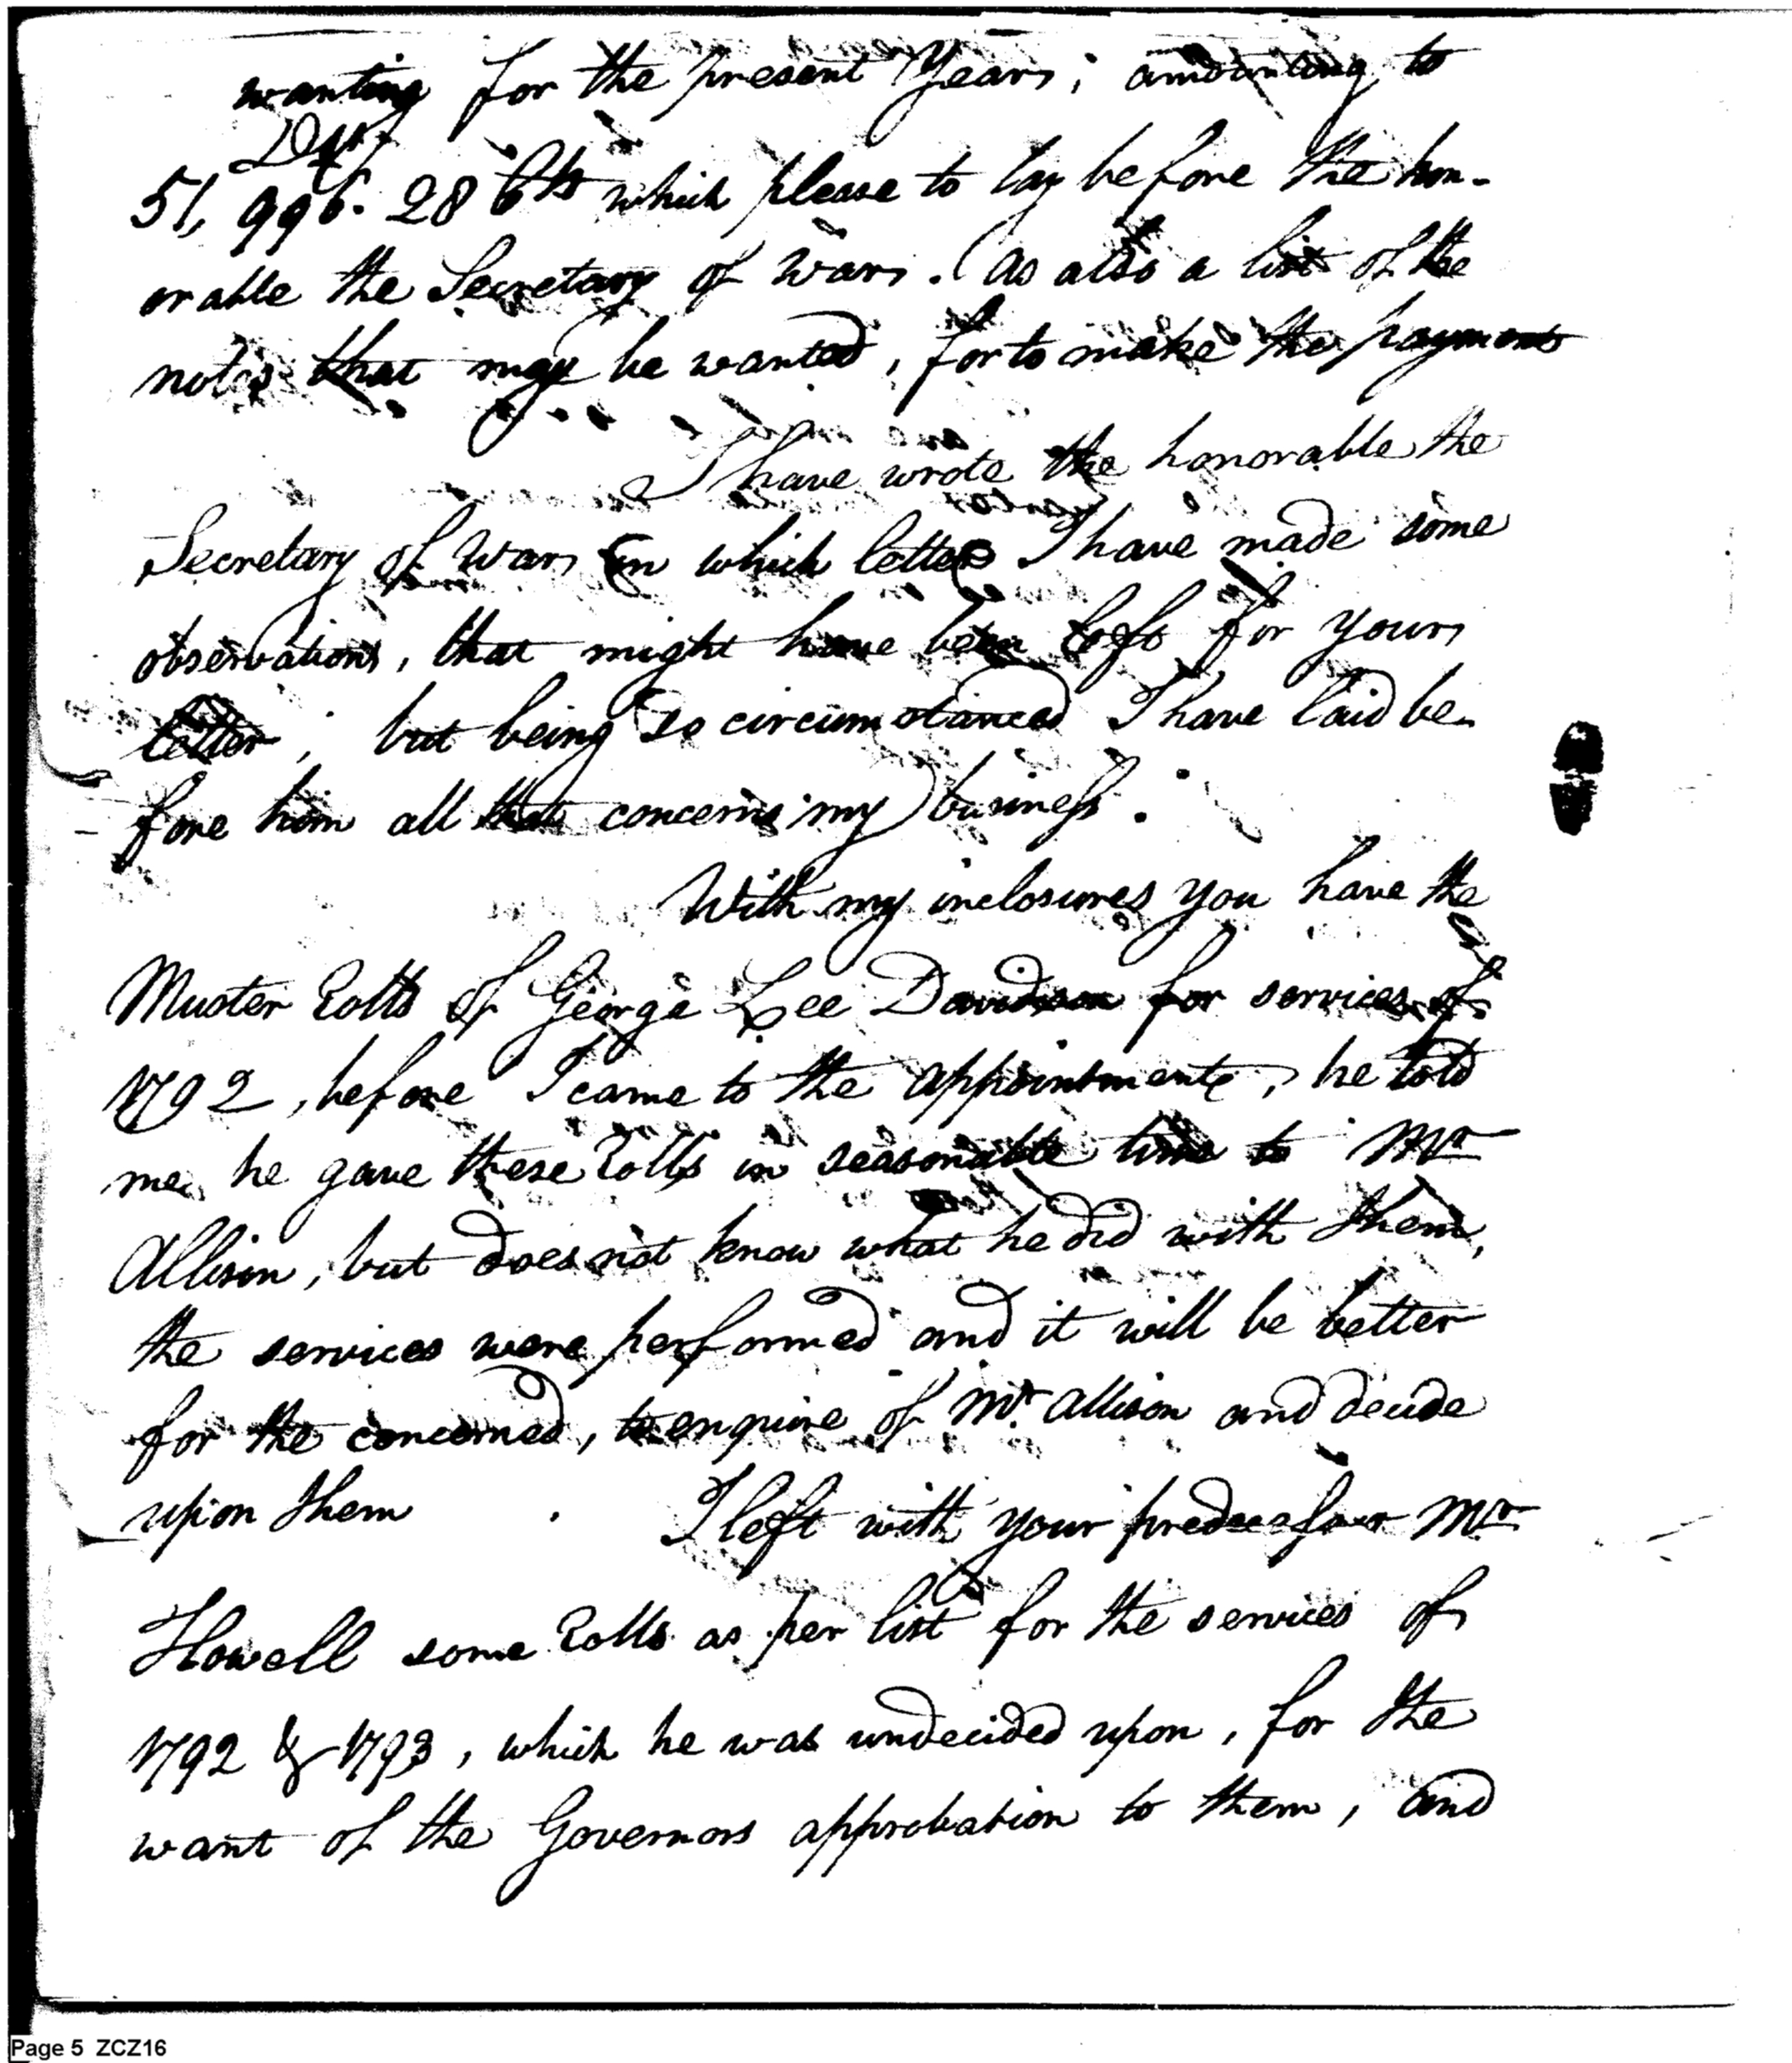 wanting for the present Year; amounting to
Drs
51,996. 28 Cts which please to lay before the hon-
orable the Secretary of War. As also a list of the
notes that may be wanted, for to make the payments
I have wrote the honorable the
Secretary of War in which letter I have made some
observations, that might have been left for your
letter; but being so circumstanced I have laid be-
fore him all that concerns my business.
With my inclosures you have the
Muster Rolls of George Lee Davidson for services of
1792, before I came to the appointment, he told
me he gave these Rolls in seasonable time to Mr
Allison, but does not know what he did with them,
the services were performed and it will be better
for the concerned, to enquire of Mr. Allison and decide
upon them . I left with your predecessor Mr
Howell some Rolls as per list for the services of
1792 & 1793, which he was undecided upon, for the
want of the Governors approbation to them, and
Page 5 ZCZ16